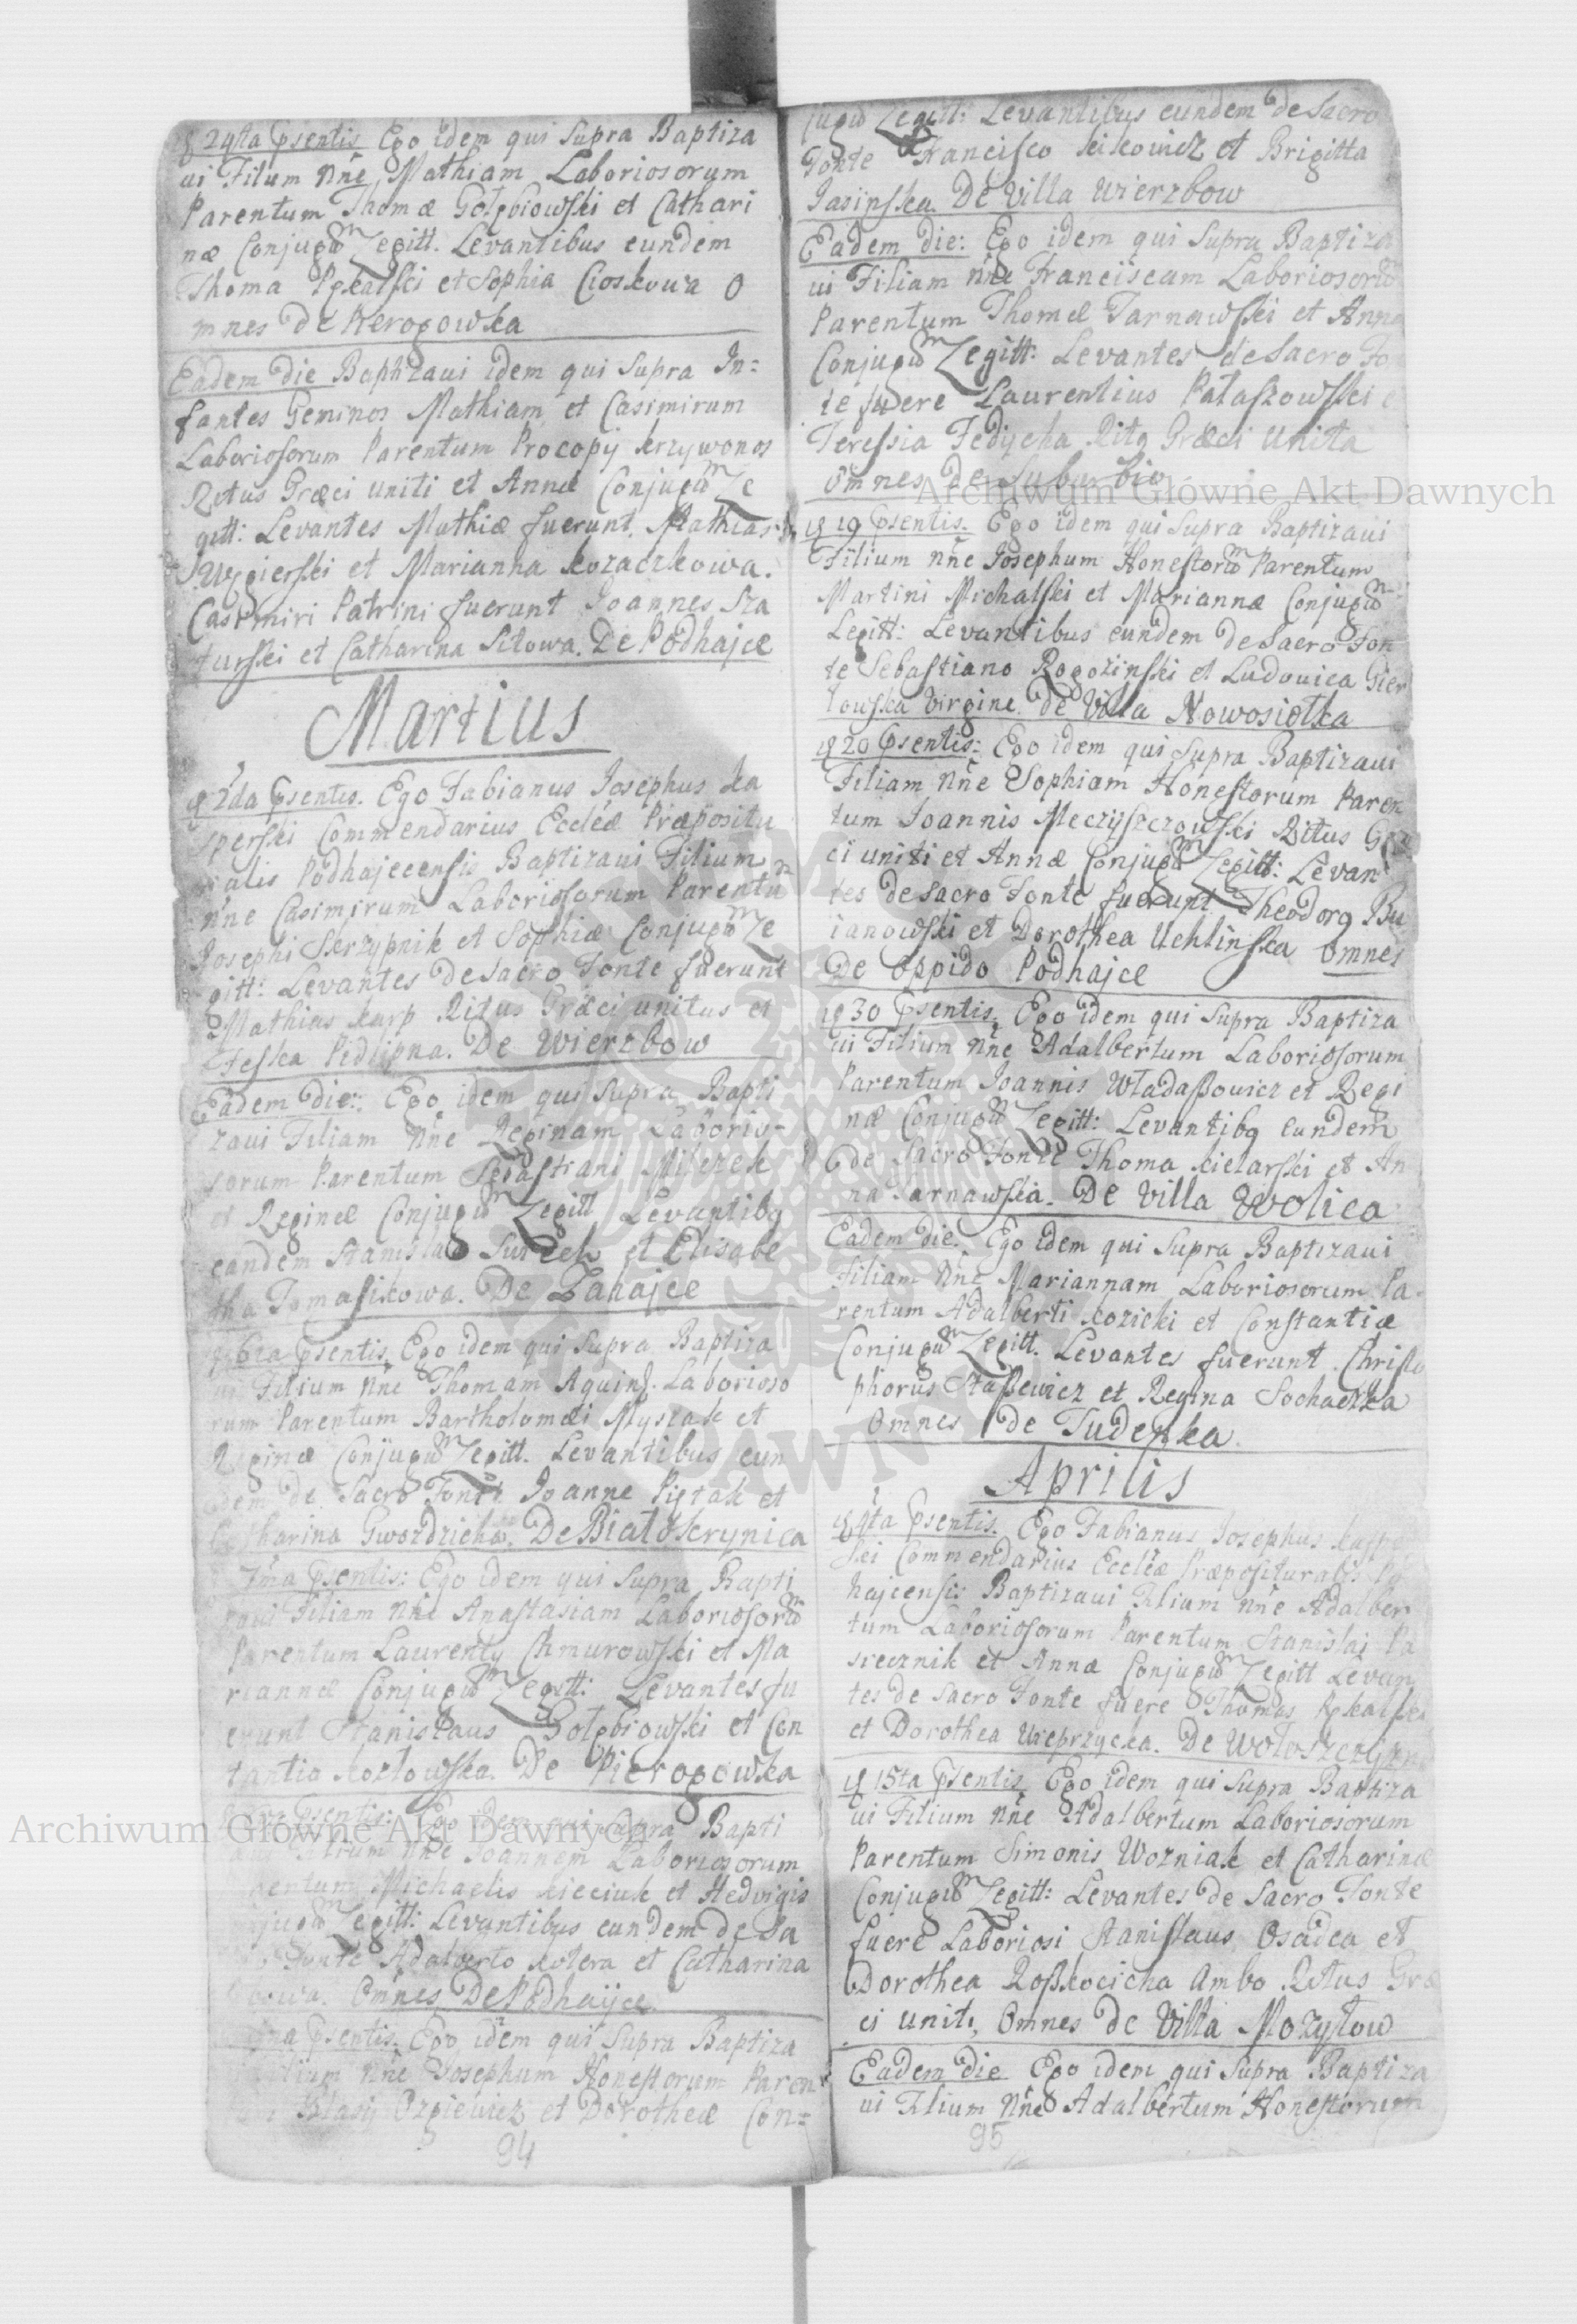 24ta Psentis Ego idem qui supra Baptiza
ui Filum Nne Mathiam Laboriosorum
Parentum Thomæ Gołębiowski et Cathari
næ Conjugum Legitt. Levantibus eundem
Thoma Pękalski et Sophia Cioskowa O
mnes de Perogowka
Eadem die Baptizaui idem qui supra In=
fantes Geminos Mathiam et Casimirum
Laboriosorum Parentum Procopij Krzywonos
Ritus Græci uniti et Annæ Conjugum Le
gitt: Levantes Mathiæ fuerunt. Mathias
Węgierski et Marianna Kozaczkowa.
Casimiri Patrini fuerunt Joannes Sza
turski et Catharina Sitowa. De Podhajce
Martius
2da Psentis. Ego Fabianus Josephus Ka
sperski Commendarius Eccléæ Præpositu
ralis Podhajecensis Baptizaui Filium
Nne Casimirum Laboriosorum Parentum
Josephi Skrzypnik et Sophiæ Conjugum Le
gitt: Levantes de sacro Fonte fuerunt
Mathias Karp Ritus Græci unitus et
Feska Pidlipna. De Wierzbow
Eadem die: Ego idem qui supra Bapti
zaui Filiam Nne Reginam Laborio-
sorum Parentum Sebastiani Milczek
et Reginæ Conjugum Legitt Levantibq
eandem Stanislao Surzek et Elisabe
tha Tomasikowa. De Zahajce
Psentis. Ego idem qui supra Baptiza
ui Filium Nne Thomam Aquins. Laborioso
rum Parentum Bartholomæi Myszak et
Reginæ Conjugum Legitt. Levantibus eun
dem de Sacro Fonte Joanne Piętak et
Catharina Gwozdzicka. De Białoskrynica
7ma Psentis: Ego idem qui supra Bapti
zaui Filiam Nne Anastasiam Laboriosorum
Parentum Laurenty Chmurowski et Ma
riannæ Conjugum Legitt: Levantes fu
erunt Stanislaus Gołębiowski et Con
tantia Kozłowska. De Pierogowka
Psentis: Ego idem qui supra Bapti
Filium Nne Joannem Laboriosorum
Parentum Michaelis Kicciuk et Hedvigis
Conjugum Legitt: Levantibus eundem de Sa
Fonte Adalberto Kolera et Catharina
Omnes De Podhajce.
Psentis. Ego idem qui supra Baptiza
Filium Nne Josephum Honestorum Paren
Blasij Ozgiewicz et Dorotheæ Con=
94
jugum Legitt: Levantibus eundem de Sacro
Fonte Francisco Kiskowicz et Brigitta
Jasinska. De Villa Wierzbow
Eadem die: Ego idem qui supra Baptiza
ui Filiam Nne Franciscam Laboriosorum
Parentum Thomæ Tarnawski et Anna
Conjugum Legitt: Levantes de Sacro Fo
te fuere Laurentius Pataszowski e
Teressia Fedijcha Ritq Græci Unita
Omnes de suburbio
19 Psentis. Ego idem qui supra Baptizaui
Filium Nne Josephum Honestorum Parentum
Martini Michalski et Mariannæ Conjugum
Legitt: Levantibus eundem de sacro Fon
te Sebastiano Rogozinski et Ludovica Gier
łowska virgine. de Villa Nowosiołka
20 Psentis: Ego idem qui supra Baptizaui
Filiam Nne Sophiam Honestorum Paren
tum Joannis Meczyszczowski Ritus Græ
ci uniti et Annæ Conjugum Legitt: Levan
tes de sacro Fonte fuerunt Theodorq Bu
ianowski et Dorothea Uchlinska Omnes
De Oppido Podhajce
30 Psentis. Ego idem qui supra Baptiza
ui Filium Nne Adalbertum Laboriosorum
Parentum Joannis Władaßowicz et Regi
næ Conjugum Legitt: Levantibq eundem
de Sacro Fonte Thoma Kielarski et An
na Tarnawska. De Villa Wolica
Eadem die. Ego idem qui supra Baptizaui
Filiam Nne Mariannam Laboriosorum Pa-
rentum Adalberti Kozicki et Constantiæ
Conjugum Legitt. Levantes fuerunt Christo
phorus Staßewicz et Regina Sochacka
Omnes de Tudenka.
Aprilis
4ta Psentis. Ego Fabianus Josephus Kasper
ski Commendarius Eccléæ Præposituralis Pod
hajcensis Baptizaui Filium Nne Adalber
tum Laboriosorum Parentum Stanislai Pa
siecznik et Annæ Conjugum Legitt Levan
tes de Sacro Fonte fuere Thomas Pękalski
et Dorothea Wieprzycka. De Wołoszczyzna
15ta Psentis Ego idem qui supra Baptiza
ui Filium Nne Adalbertum Laboriosorum
Parentum Simonis Wozniak et Catharinæ
Conjugum Legitt: Levantes de Sacro Fonte
fuere Laboriosi Stanislaus Osadca et
Dorothea Roßkocicha Ambo Ritus Græ
ci Uniti, Omnes de Villa Mozyłow
Eadem die Ego idem qui supra Baptiza
ui Filium Nne Adalbertum Honestorum
95
Archiwum Główne Akt Dawnych
Archiwum Główne Akt Dawnych